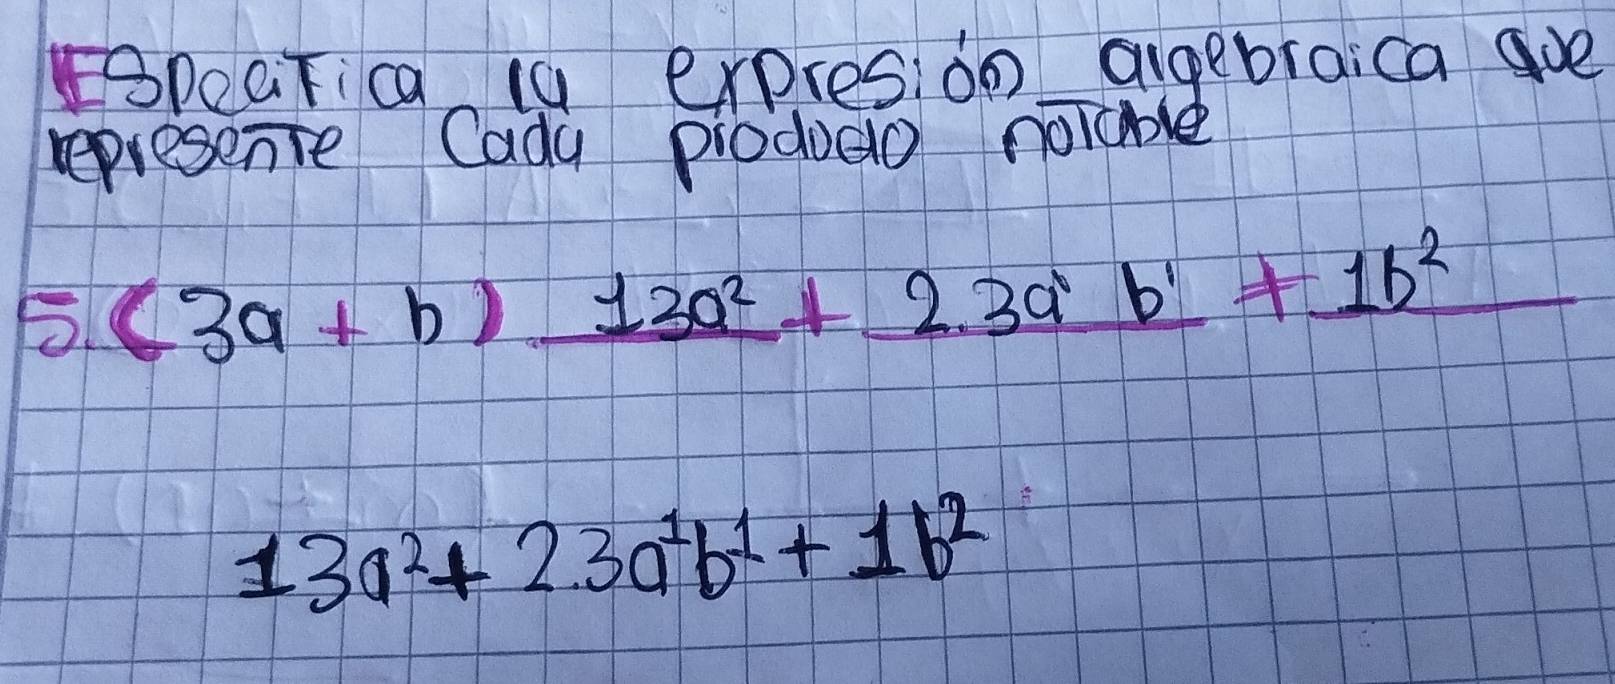 Especifica la expresión algebraica que
represente Cada producto notable
5. (3a + b) 13a² + 2.3a¹ b¹ + 1b²
13a² + 2.3a¹b¹ + 1b²